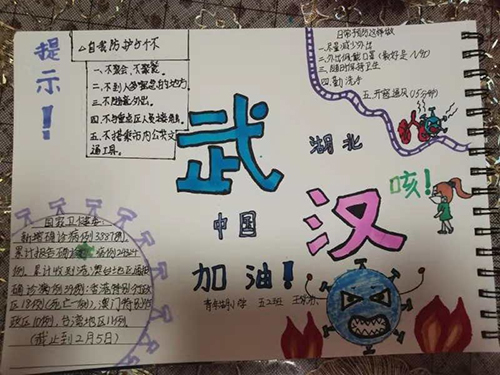 提示！
自我防护5个不
一、不聚会、不聚餐。
二、不到人多聚集的地方。
三、不随意外出。
四、不与重点区人员接触。
五、不搭乘
通工具。
日常预防这样做
一、尽量减少外出
二、外出佩戴口罩（最好是N95）
三、随时保持卫生
四、勤洗手
五、开窗通风（15分钟）
武汉
湖北
中国
加油！
咳！
国家卫健委:
新增确诊病例3887例,
累计报告确诊病例24324
例，累计收到港澳台地区通报
确诊病例39例:香港特别行政
区18例(死亡1例),澳门特别行
政区10例，台湾地区11例
(截止到2月5日)
小学 五2班